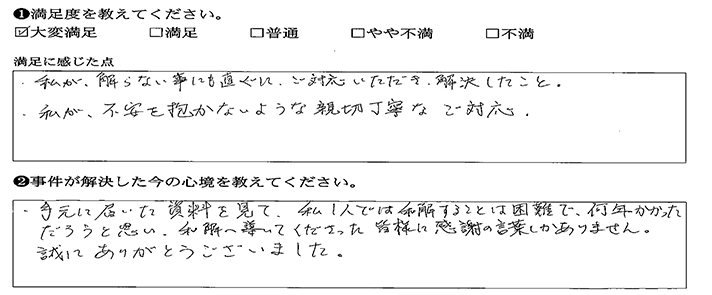 ❶満足度を教えてください。
☑大変満足 □満足 □普通 □やや不満 □不満
満足に感じた点
・私が、解らない事にも直ぐに、ご対応いただき、解決したこと。
・私が、不安を抱かないような親切丁寧なご対応.
❷事件が解決した今の心境を教えてください。
・手元に届いた資料を見て、私1人では和解することは困難で、何年かかった
だろうと思い、和解へ導いてくださった皆様に感謝の言葉しかありません。
誠にありがとうございました。